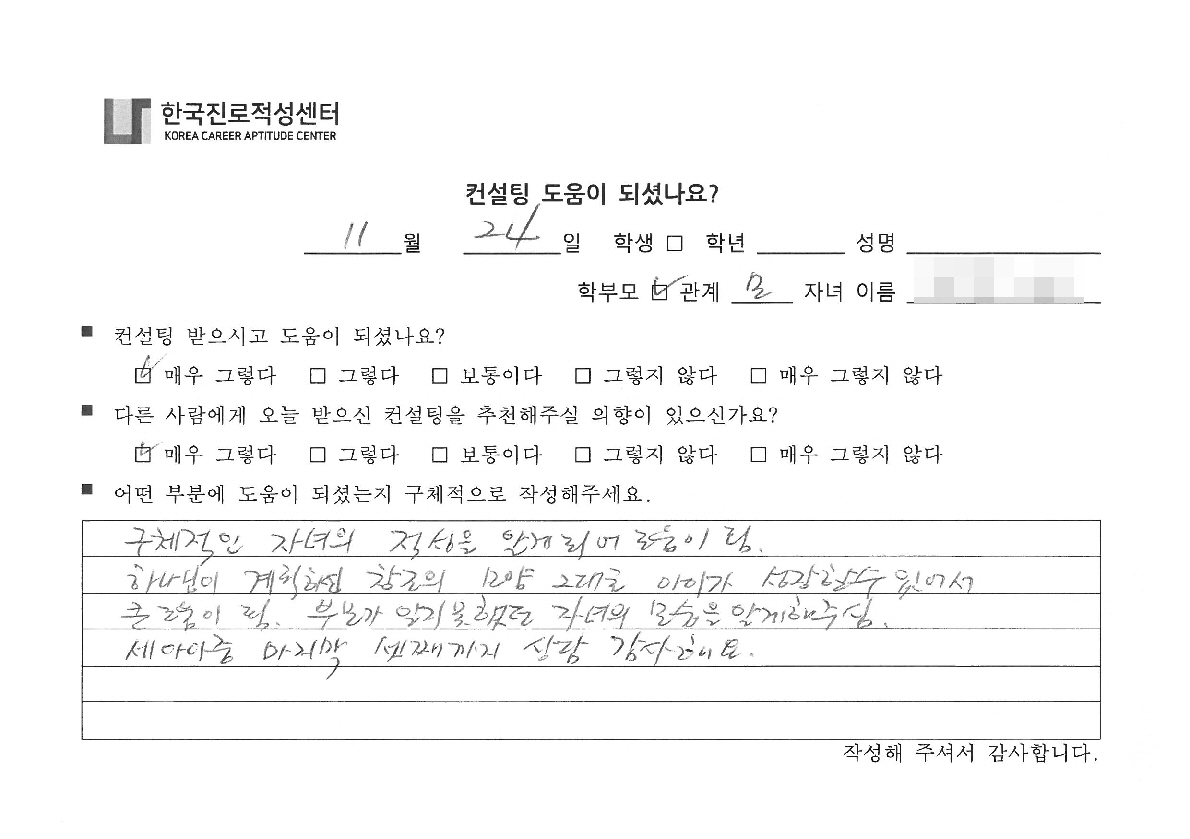 한국진로적성센터
KOREA CAREER APTITUDE CENTER
컨설팅 도움이 되셨나요?
11 월 24 일 학생 □ 학년 성명
학부모 ☑ 관계 모 자녀 이름
■ 컨설팅 받으시고 도움이 되셨나요?
☑ 매우 그렇다 □ 그렇다 □ 보통이다 □ 그렇지 않다 □ 매우 그렇지 않다
■ 다른 사람에게 오늘 받으신 컨설팅을 추천해주실 의향이 있으신가요?
☑ 매우 그렇다 □ 그렇다 □ 보통이다 □ 그렇지 않다 □ 매우 그렇지 않다
■ 어떤 부분에 도움이 되셨는지 구체적으로 작성해주세요.
구체적인 자녀의 적성을 알게되어 도움이 됨.
하나님이 계획하심 창조의 모양 그대로 아이가 성장할수 있어서
큰 도움이 됨. 부모가 알지못했던 자녀의 모습을 알게해주심.
세아이중 마지막 셋째까지 상담 감사해요.
작성해 주셔서 감사합니다.